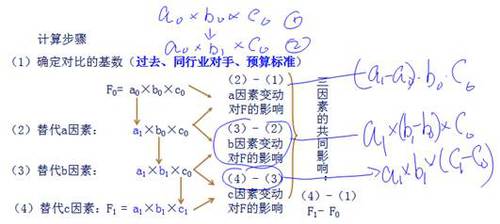 a₀×b₀×c₀ ①
计算步骤
a₀×b₁×c₀ ②
(1) 确定对比的基数（过去、同行业对手、预算标准）
F₀= a₀×b₀×c₀
(2) － (1)
a因素变动
对F的影响
(a₁-a₀)·b₀·C₀
(2) 替代a因素：
a₁×b₀×c₀
(3) － (2)
b因素变动
对F的影响
a₁×(b₁-b₀)×C₀
(3) 替代b因素：
a₁×b₁×c₀
(4) － (3)
c因素变动
对F的影响
a₁×b₁×(C₁-C₀)
(4) 替代c因素：F₁ = a₁×b₁×c₁
三因素的共同影响：
(4) － (1)
F₁－F₀